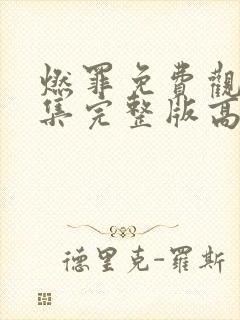 燃罪免費觀
集完整版高
德里克-羅斯